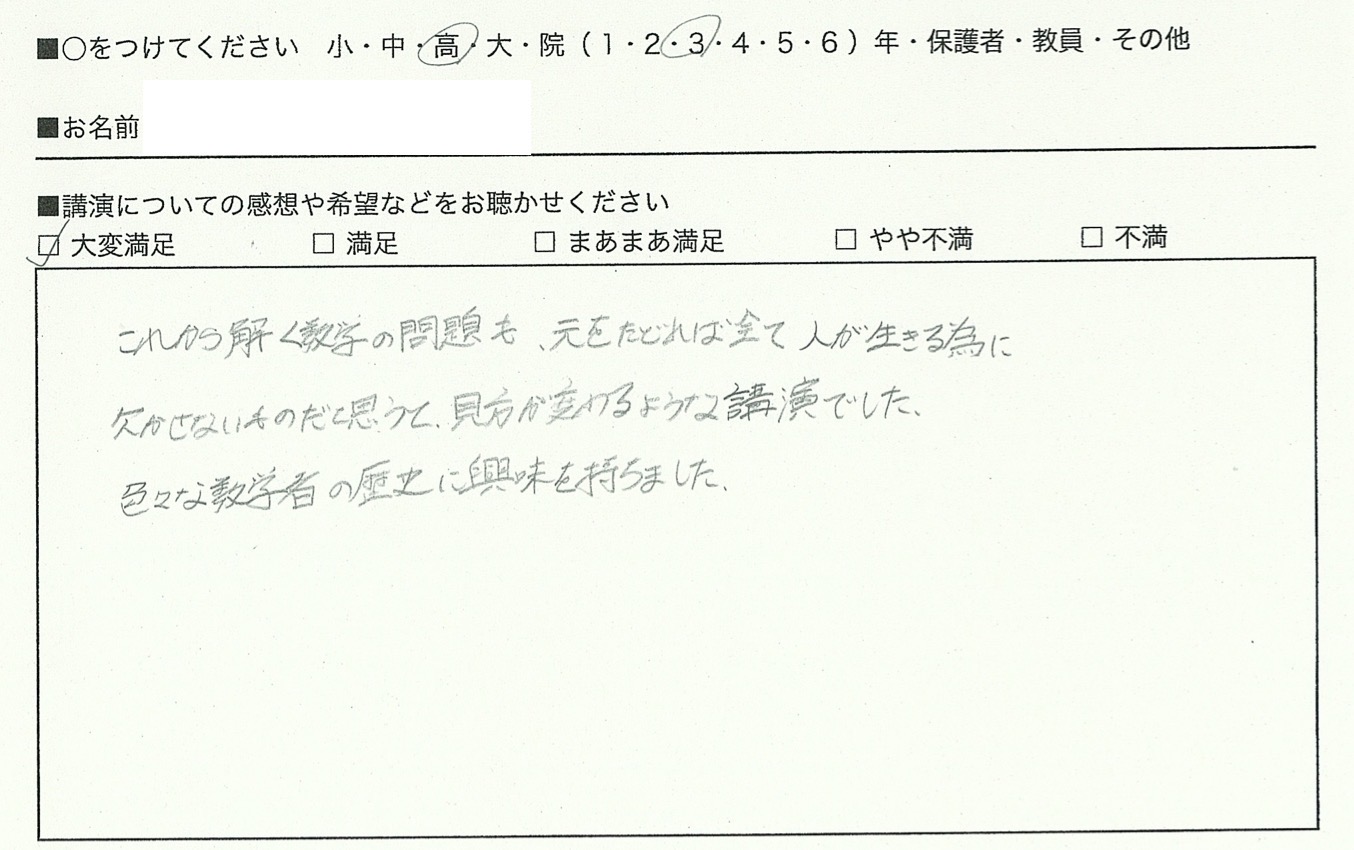 ■○をつけてください 小・中・高・大・院(1・2・3・4・5・6)年・保護者・教員・その他
■お名前
■講演についての感想や希望などをお聴かせください
□ 大変満足 □ 満足 □ まあまあ満足 □ やや不満 □ 不満
これから解く数学の問題も、元をたどれば全て人が生きる為に
欠かせないものだと思うて、見方が変わるような講演でした、
色々な数学者の歴史に興味を持ちました、